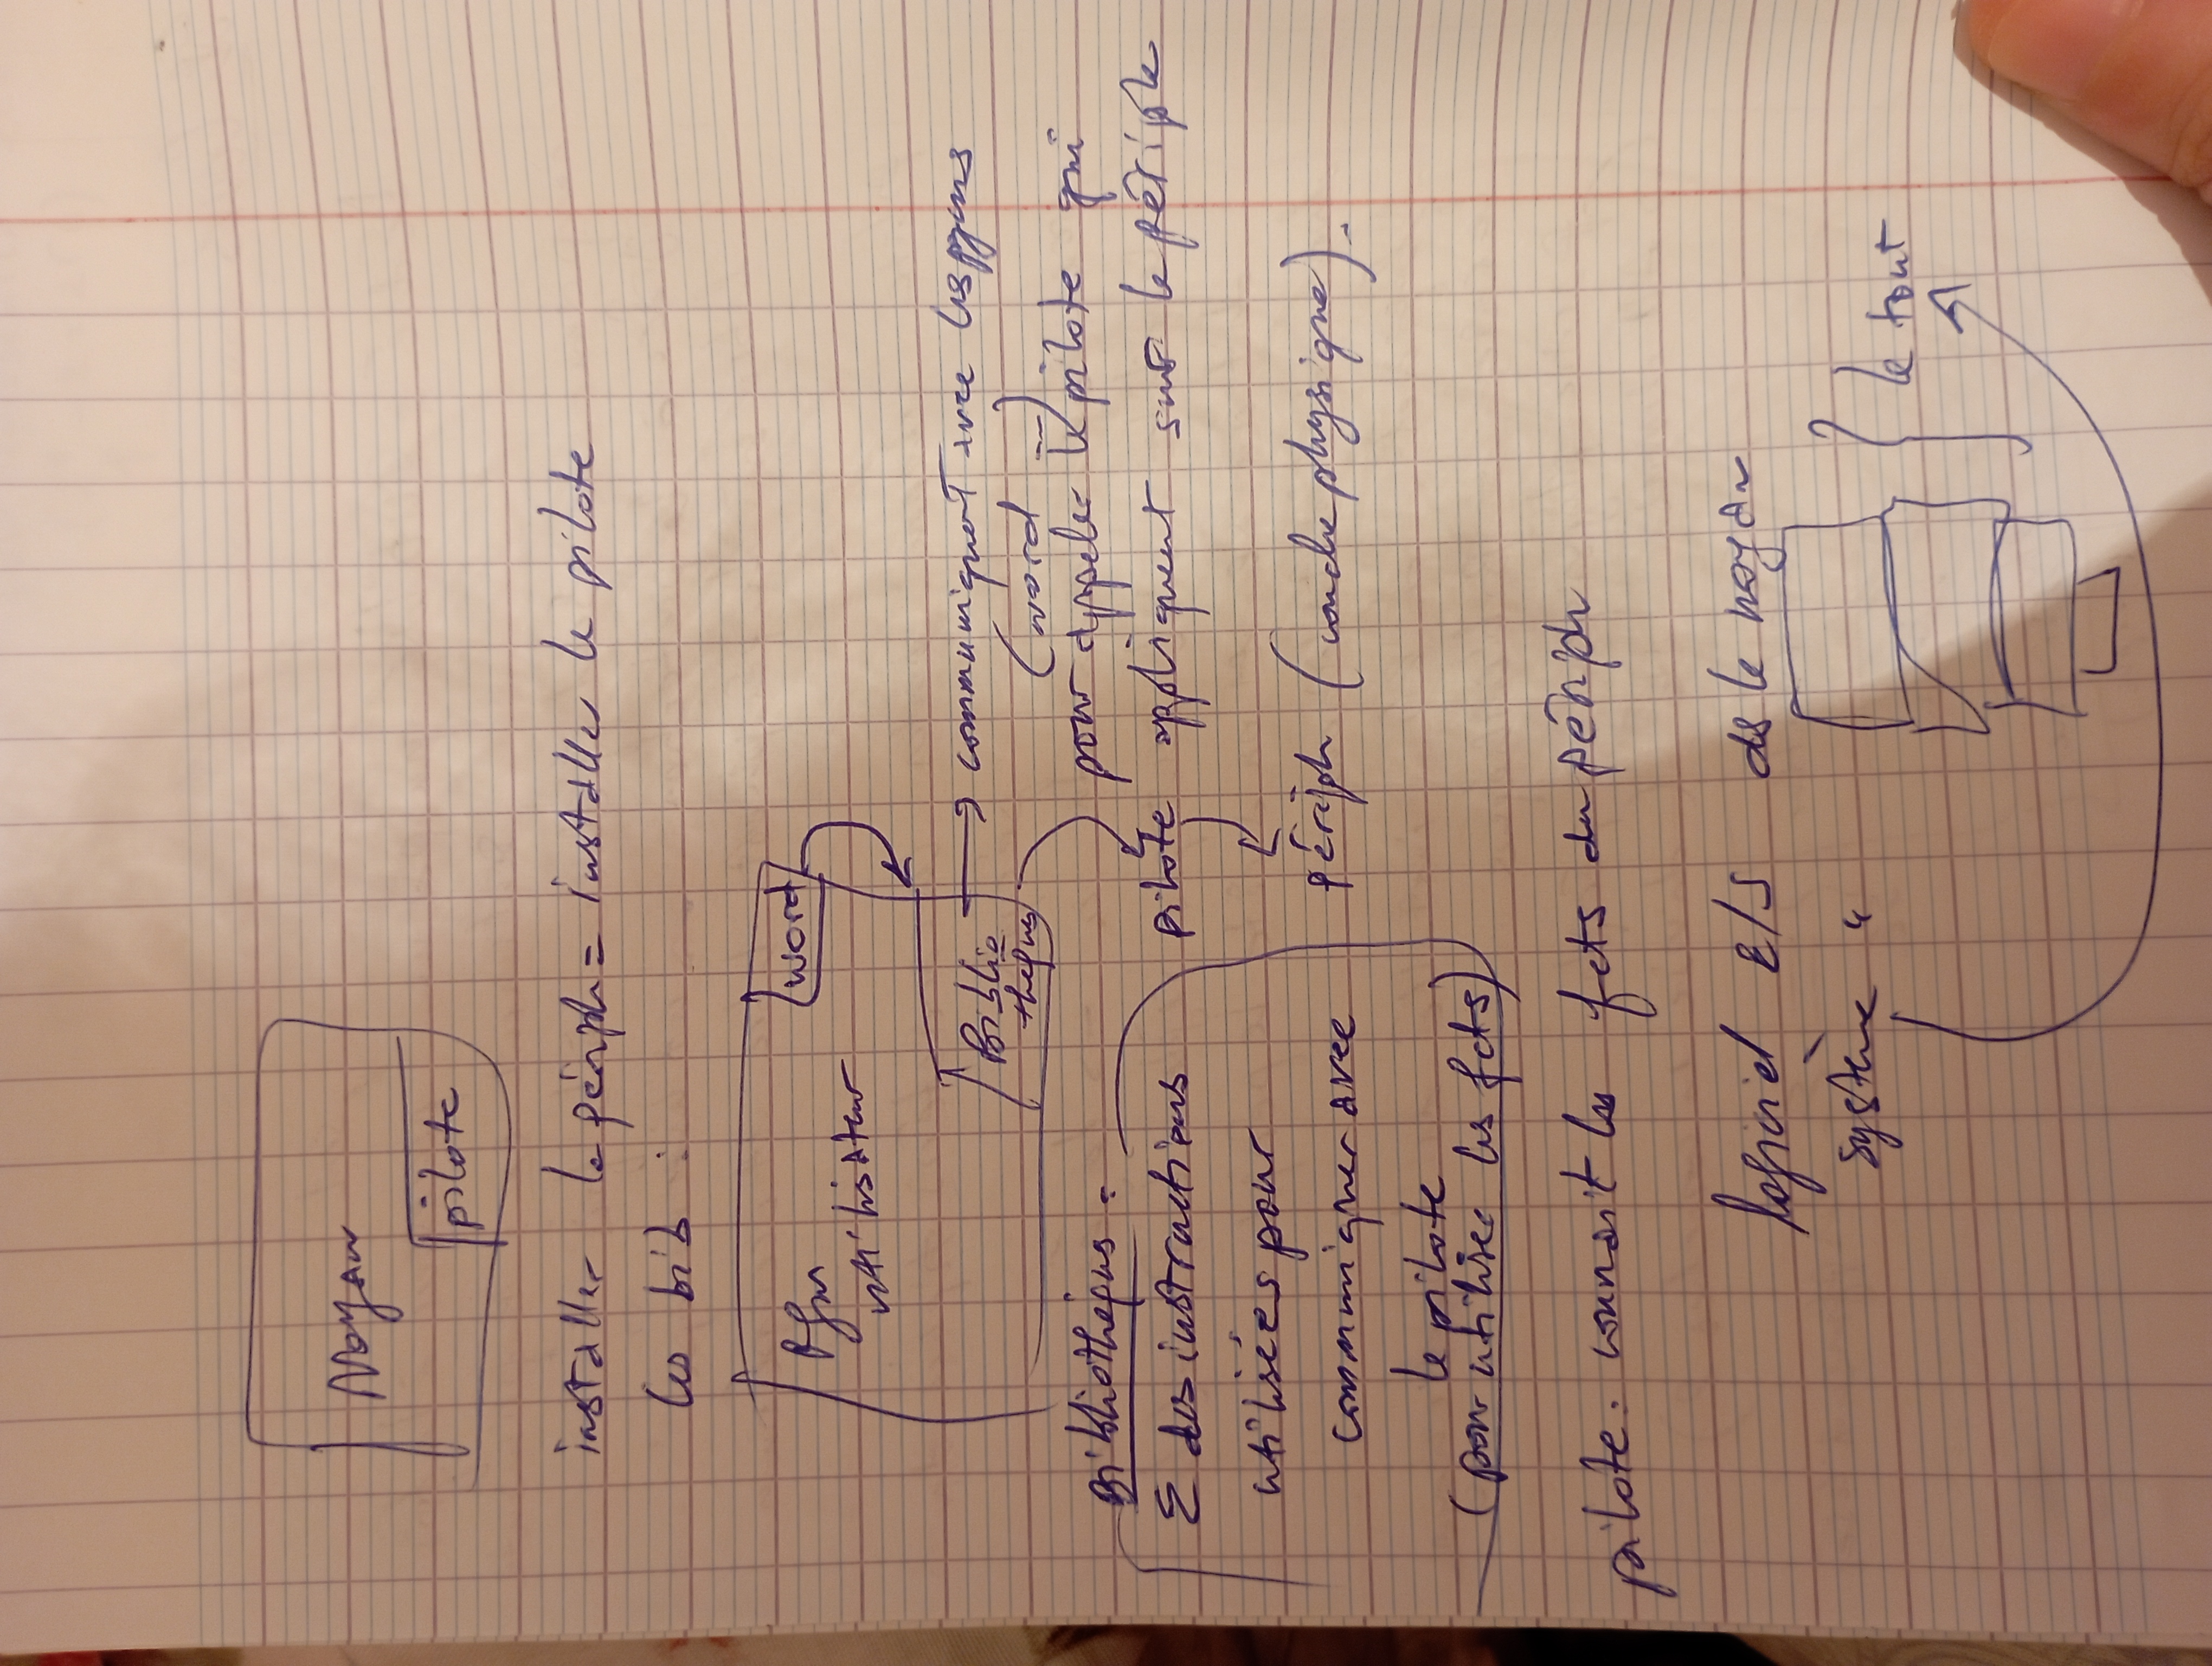 Noyau
pilote
installer le périph = installer le pilote
les bib :
Pgm
utilisateur
word
Biblio
thèques
→ communiquent avec les pgms
(word ...)
pour appeler le pilote qui
appliquent sur le périph
pilote
périph (couche physique).
Bibliothèques =
Σ des instructions
utilisées pour
communiquer avec
le pilote
(pour utiliser les fcts)
pilote : connait les fcts du périph
logiciel E/S ds le noyau
système "
le tout